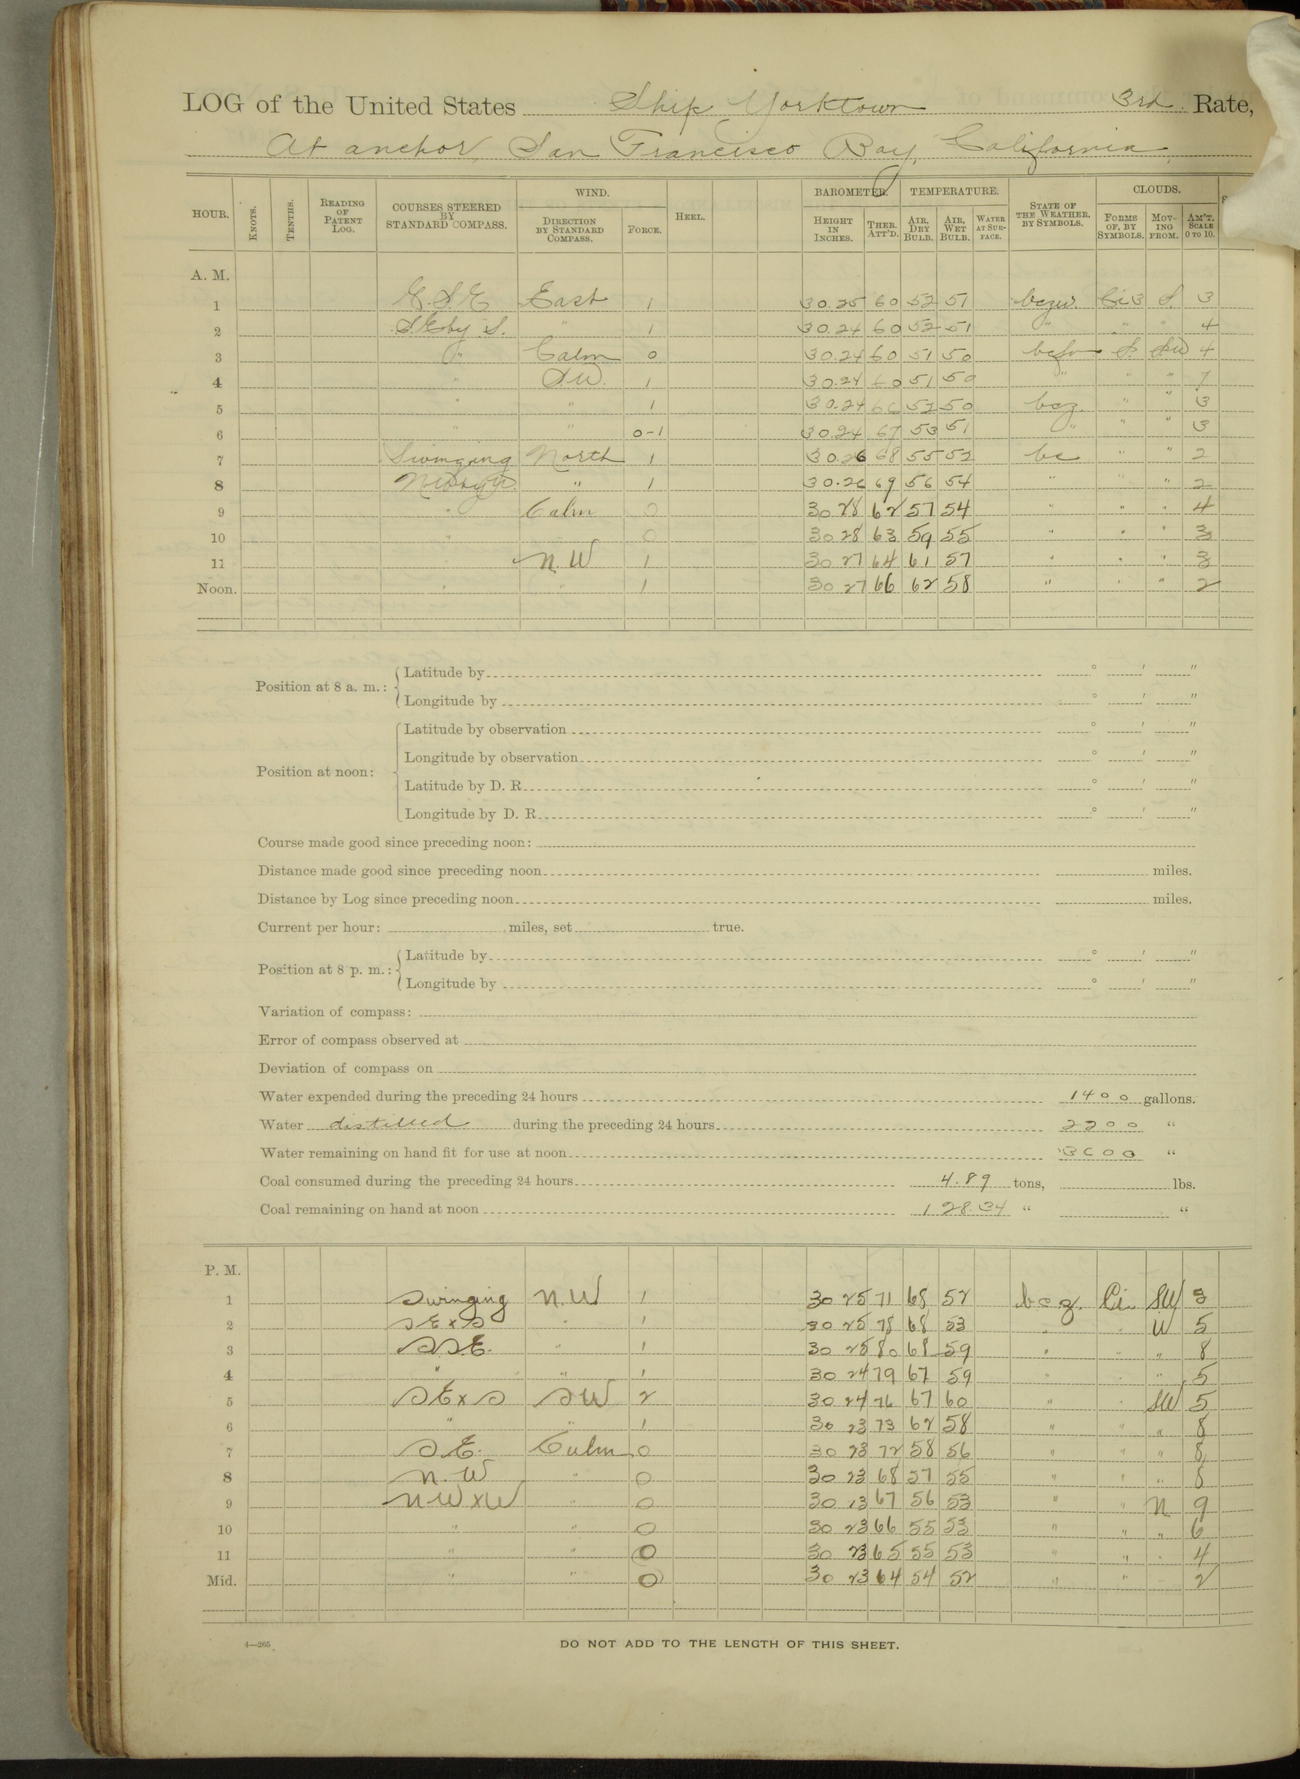 LOG of the United States Ship Yorktown 3rd Rate,
At anchor, San Francisco Bay, California
HOUR. KNOTS. TENTHS. READING OF PATENT LOG. COURSES STEERED BY STANDARD COMPASS. WIND. DIRECTION BY STANDARD COMPASS. FORCE. HEEL. BAROMETER. HEIGHT IN INCHES. THER. ATT'D. TEMPERATURE. AIR, DRY BULB. AIR, WET BULB. WATER AT SURFACE. STATE OF THE WEATHER, BY SYMBOLS. CLOUDS. FORMS OF, BY SYMBOLS. MOVING FROM. AM'T. SCALE 0 TO 10.
A. M.
1 East 1 30.25 60 52 51 3
2 SE by S. " 1 30.24 60 52 51 " " " 4
3 " Calm 0 30.24 60 51 50 S. SW 4
4 " SW. 1 30.24 60 51 50 " " " 7
5 " " 1 30.24 66 52 50 bcz. " " 3
6 " " 0-1 30.24 67 53 51 " " " 3
7 Swinging North 1 30.26 68 55 52 bc " " 2
8 " 1 30.26 69 56 54 " " " 2
9 " Calm 0 30 28 62 57 54 " " " 4
10 " 0 30 28 63 59 55 " " " 3
11 N.W 1 30 27 64 61 57 " " " 3
Noon. " " 1 30 27 66 62 58 " " " 2
Position at 8 a. m.: Latitude by ° ' "
Longitude by ° ' "
Position at noon: Latitude by observation ° ' "
Longitude by observation ° ' "
Latitude by D. R. ° ' "
Longitude by D. R. ° ' "
Course made good since preceding noon:
Distance made good since preceding noon miles.
Distance by Log since preceding noon miles.
Current per hour: miles, set true.
Position at 8 p. m.: Latitude by ° ' "
Longitude by ° ' "
Variation of compass:
Error of compass observed at
Deviation of compass on
Water expended during the preceding 24 hours 1400 gallons.
Water distilled during the preceding 24 hours 2200 "
Water remaining on hand fit for use at noon "
Coal consumed during the preceding 24 hours 4.89 tons, lbs.
Coal remaining on hand at noon 128.34 " "
P. M.
1 Swinging N.W 1 30 25 71 68 52 bcz. Ci. SW 3
2 SExS " 1 30 25 78 68 53 " " W 5
3 SSE. " 1 30 25 80 68 59 " " " 8
4 " " 1 30 24 79 67 59 " " " 5
5 SExS SW 2 30 24 76 67 60 " " SW 5
6 " " 1 30 23 73 62 58 " " " 8
7 SE. Calm 0 30 23 72 58 56 " " " 8
8 N.W " 0 30 23 68 57 55 " " " 8
9 NWxW " 0 30 23 67 56 53 " " N 9
10 " " 0 30 23 66 55 53 " " " 6
11 " " 0 30 23 65 55 53 " " " 4
Mid. " " 0 30 23 64 54 52 " " 2
4—265
DO NOT ADD TO THE LENGTH OF THIS SHEET.